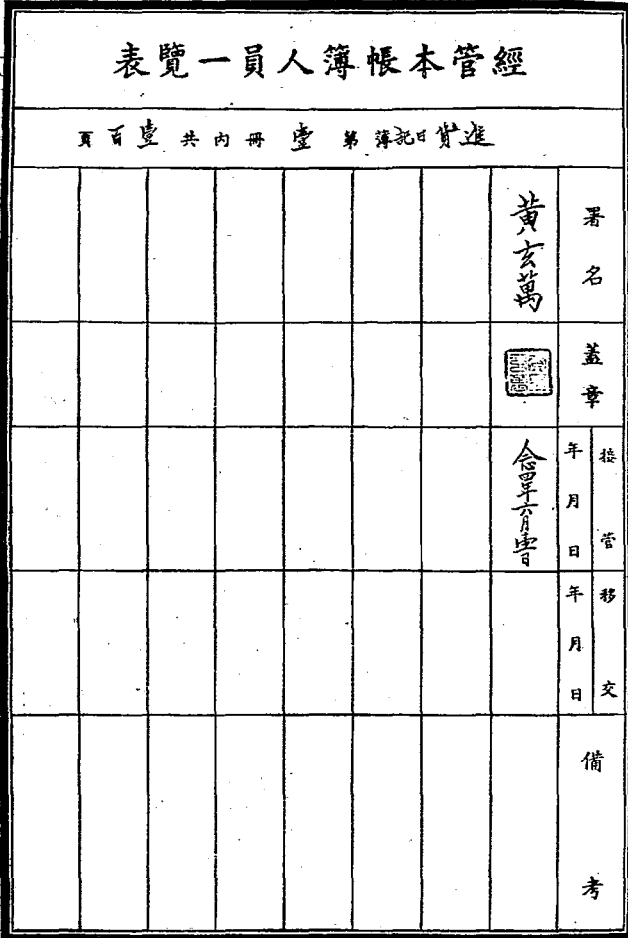 經管本帳簿人員一覽表
進貨日記簿第壹冊內共壹百頁
署名
黃玄萬
蓋章
接管
年月日
移交
年月日
備考